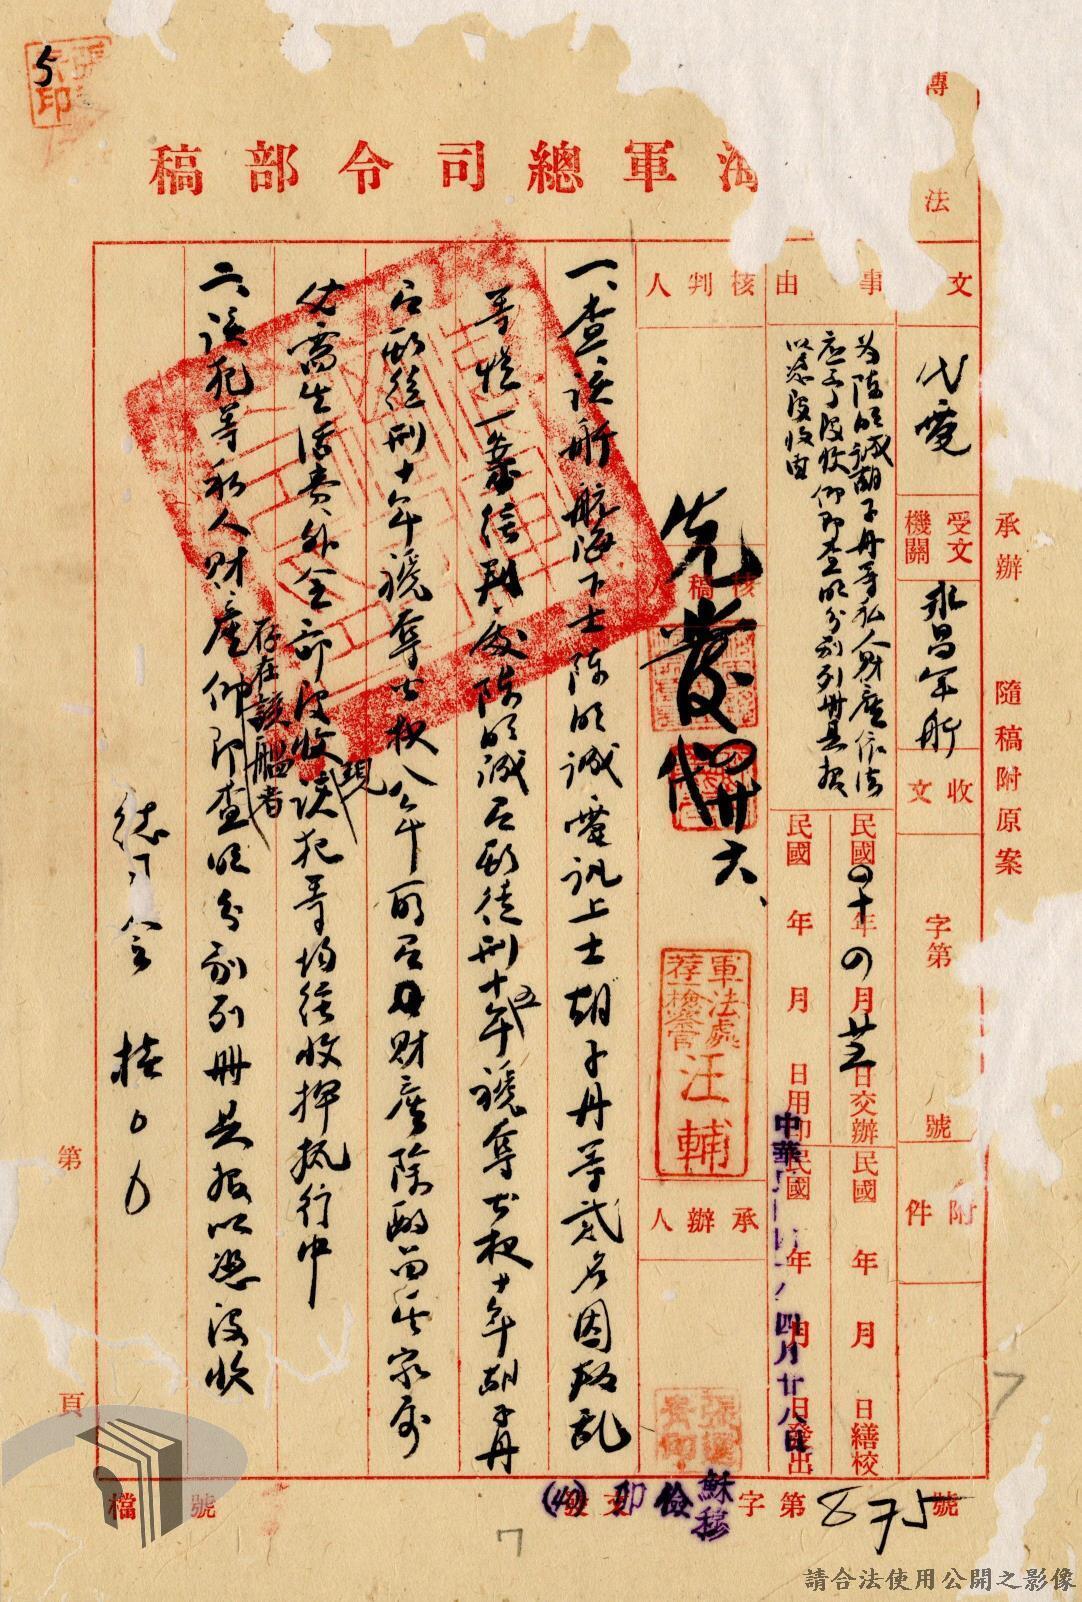 海軍總司令部稿
傳
法
承辦 隨稿附原案
文
代電
受文機關
永昌軍艦
收文
字第
號
附件
事由
為陳明誠胡子丹等私人財產依法
應予沒收仰即查明分別列冊具報
以憑沒收由
民國四十年四月廿五日交辦
民國 年 月 日繕校
民國 年 月 日用印
民國 年 月 日發出
四月廿八日
核判人
核稿人
先發
代
六、
軍法處
荐一檢察官
汪輔
承辦人
一、查該艦航海下士陳明誠電訊上士胡子丹等貳名因叛亂
等情一案經判處陳明誠有期徒刑十五年褫奪公權十年胡子丹
有期徒刑十年褫奪公權八年所有財產除酌留其家屬
必需生活費外全部沒收該犯等均經收押執行中
二、該犯等現存在該艦者私人財產仰即查明分別列冊具報以憑沒收
總司令 桂〇〇
第 頁
檔 號
發文 字第875號
儉
印
(40)
5
7
7
請合法使用公開之影像